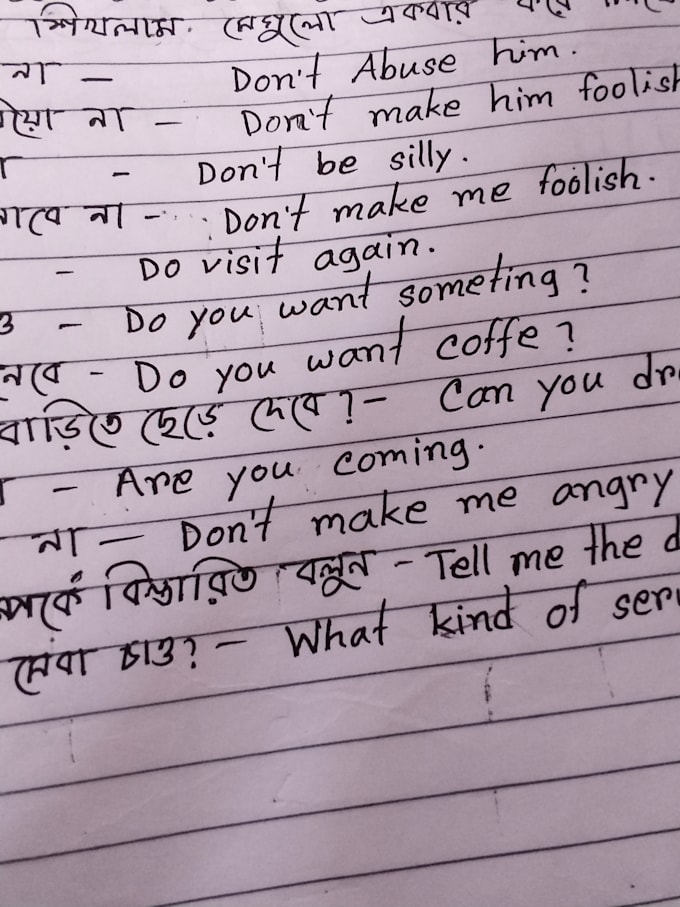 শিখলাম. সেগুলো একবার করে
না - Don't Abuse him.
না - Don't make him foolish
- Don't be silly.
না - Don't make me foolish.
- Do visit again.
ও - Do you want someting?
- Do you want coffe?
বাড়িতে ছেড়ে দেবে? - Can you
- Are you coming.
না - Don't make me angry
বিস্তারিত বলুন - Tell me the
সেবা চাও? - What kind of